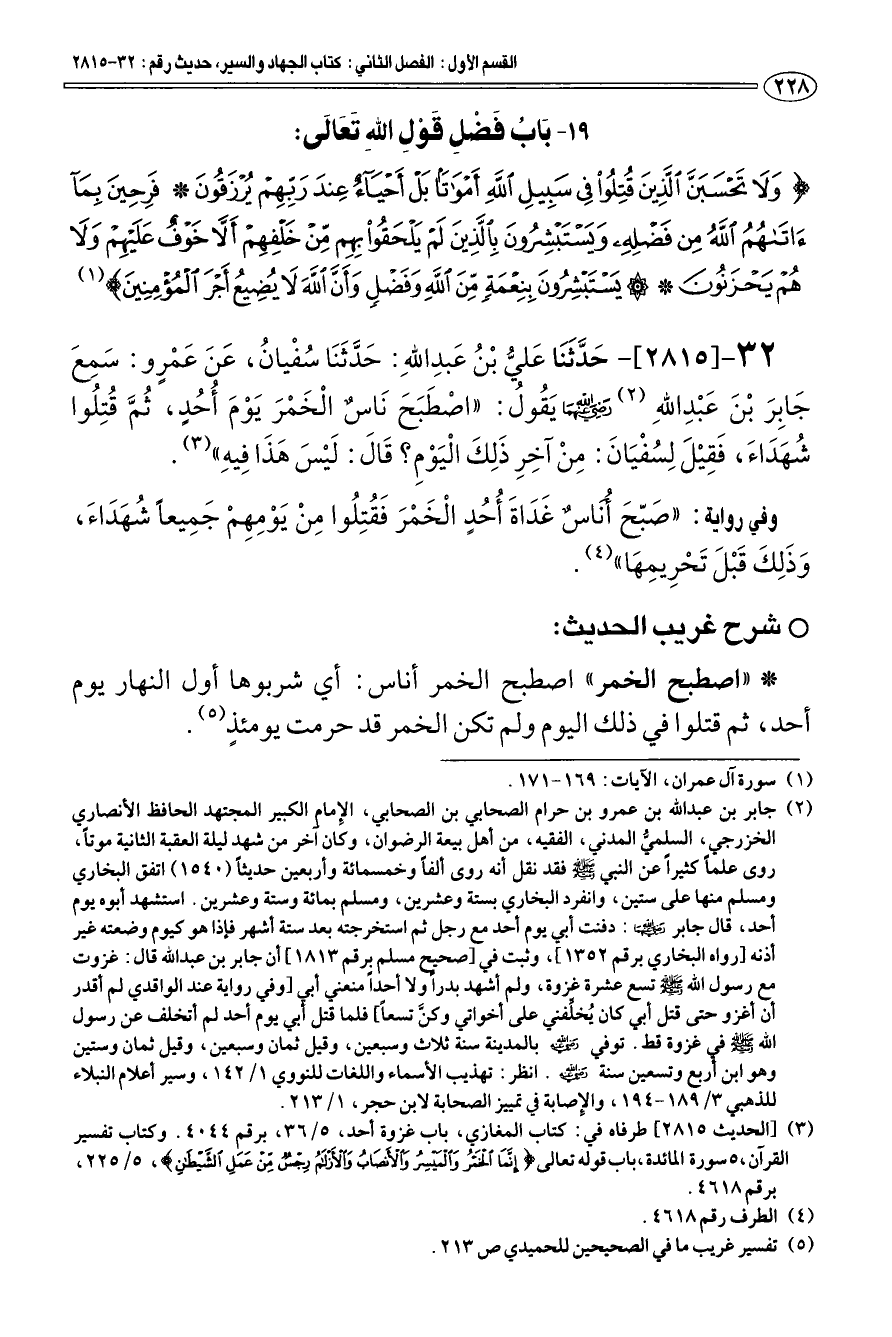 القسم الأول: الفصل الثاني: كتاب الجهاد والسير، حديث رقم: ٣٢-٢٨١٥
٢٢٨
١٩- بَابُ فَضْلِ قَوْلِ اللهِ تَعَالَى:
﴿ وَلَا تَحْسَبَنَّ ٱلَّذِينَ قُتِلُوا۟ فِى سَبِيلِ ٱللَّهِ أَمْوَٰتًۢا بَلْ أَحْيَآءٌ عِندَ رَبِّهِمْ يُرْزَقُونَ * فَرِحِينَ بِمَآ
ءَاتَىٰهُمُ ٱللَّهُ مِن فَضْلِهِۦ وَيَسْتَبْشِرُونَ بِٱلَّذِينَ لَمْ يَلْحَقُوا۟ بِهِم مِّنْ خَلْفِهِمْ أَلَّا خَوْفٌ عَلَيْهِمْ وَلَا
هُمْ يَحْزَنُونَ * ۞ يَسْتَبْشِرُونَ بِنِعْمَةٍ مِّنَ ٱللَّهِ وَفَضْلٍ وَأَنَّ ٱللَّهَ لَا يُضِيعُ أَجْرَ ٱلْمُؤْمِنِينَ﴾(١)
٣٢-[٢٨١٥]- حَدَّثَنَا عَلِيُّ بْنُ عَبدِاللهِ: حَدَّثَنَا سُفْيانُ، عَنَ عَمْرٍو: سَمِعَ
جَابِرَ بْنَ عَبْدِاللهِ (٢) رَضِيَ اللهُ عَنْهُمَا يَقُولُ: «اصْطَبَحَ نَاسٌ الْخَمْرَ يَوْمَ أُحُدٍ، ثُمَّ قُتِلُوا
شُهَدَاءَ، فَقِيْلَ لِسُفْيَانَ: مِنْ آخِرِ ذَلِكَ الْيَوْمِ؟ قَالَ: لَيْسَ هَذَا فِيهِ»(٣).
وفي رواية: «صَبَّحَ أُنَاسٌ غَدَاةَ أُحُدٍ الْخَمْرَ فَقُتِلُوا مِنْ يَوْمِهِمْ جَمِيعاً شُهَدَاءَ،
وَذَلِكَ قَبْلَ تَحْرِيمِهَا»(٤).
○ شرح غريب الحديث:
* «اصطبح الخمر» اصطبح الخمر أناس: أي شربوها أول النهار يوم
أحد، ثم قتلوا في ذلك اليوم ولم تكن الخمر قد حرمت يومئذٍ(٥).
(١) سورة آل عمران، الآيات: ١٦٩-١٧١.
(٢) جابر بن عبدالله بن عمرو بن حرام الصحابي بن الصحابي، الإمام الكبير المجتهد الحافظ الأنصاري
الخزرجي، السلميُّ المدني، الفقيه، من أهل بيعة الرضوان، وكان آخر من شهد ليلة العقبة الثانية موتاً،
روى علماً كثيراً عن النبي ﷺ فقد نقل أنه روى ألفاً وخمسمائة وأربعين حديثاً (١٥٤٠) اتفق البخاري
ومسلم منها على ستين، وانفرد البخاري بستة وعشرين، ومسلم بمائة وستة وعشرين. استشهد أبوه يوم
أحد، قال جابر رضي الله عنه: دفنت أبي يوم أحد مع رجل ثم استخرجته بعد ستة أشهر فإذا هو كيوم وضعته غير
أذنه [رواه البخاري برقم ١٣٥٢]، وثبت في [صحيح مسلم برقم ١٨١٣] أن جابر بن عبدالله قال: غزوت
مع رسول الله ﷺ تسع عشرة غزوة، ولم أشهد بدراً ولا أحداً منعني أبي [وفي رواية عند الواقدي لم أقدر
أن أغزو حتى قتل أبي كان يُخلِّفني على أخواتي وكنَّ تسعاً] فلما قتل أبي يوم أحد لم أتخلف عن رسول
الله ﷺ في غزوة قط. توفي رضي الله عنه بالمدينة سنة ثلاث وسبعين، وقيل ثمان وسبعين، وقيل ثمان وستين
وهو ابن أربع وتسعين سنة رضي الله عنه. انظر: تهذيب الأسماء واللغات للنووي ١/ ١٤٢، وسير أعلام النبلاء
للذهبي ٣/ ١٨٩-١٩٤، والإصابة في تمييز الصحابة لابن حجر، ١/ ٢١٣.
(٣) [الحديث ٢٨١٥] طرفاه في: كتاب المغازي، باب غزوة أحد، ٥/ ٣٦، برقم ٤٠٤٤. وكتاب تفسير
القرآن،٥ سورة المائدة،باب قوله تعالى﴿إِنَّمَا ٱلْخَمْرُ وَٱلْمَيْسِرُ وَٱلْأَنصَابُ وَٱلْأَزْلَٰمُ رِجْسٌ مِّنْ عَمَلِ ٱلشَّيْطَٰنِ﴾، ٥/ ٢٢٥،
برقم ٤٦١٨.
(٤) الطرف رقم ٤٦١٨.
(٥) تفسير غريب ما في الصحيحين للحميدي ص ٢١٣.